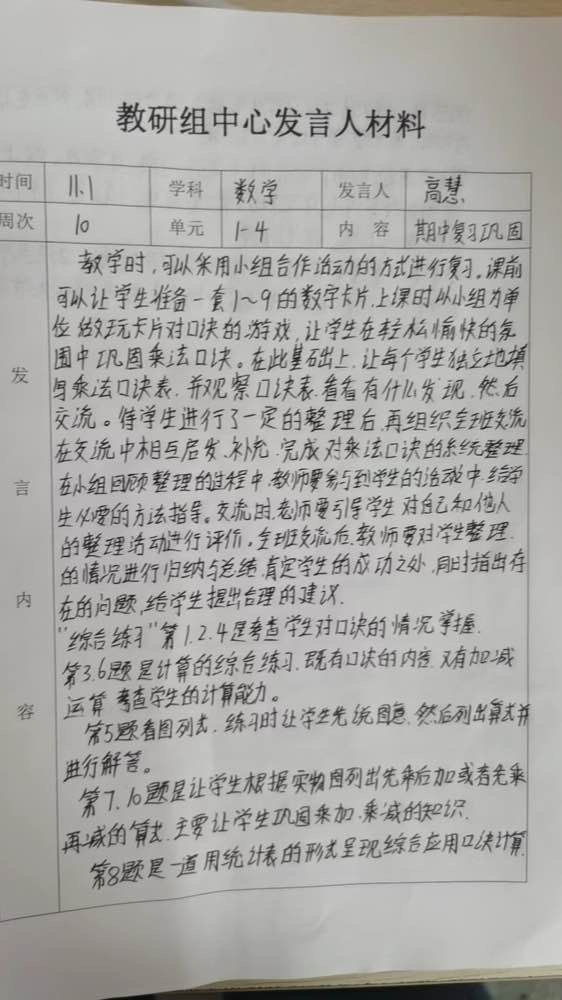 教研组中心发言人材料
时间 11.1 学科 数学 发言人 高慧
周次 10 单元 1-4 内容 期中复习巩固
发言内容
教学时,可以采用小组合作活动的方式进行复习,课前
可以让学生准备一套1~9的数字卡片,上课时以小组为单
位做玩卡片对口诀的游戏,让学生在轻松愉快的氛
围中巩固乘法口诀。在此基础上,让每个学生独立地填
写乘法口诀表,并观察口诀表,看看有什么发现,然后
交流。待学生进行了一定的整理后,再组织全班交流
在交流中相互启发、补充,完成对乘法口诀的系统整理.
在小组回顾整理的过程中,教师要参与到学生的活动中,给学
生必要的方法指导。交流时,老师要引导学生对自己和他人
的整理活动进行评价。全班交流后,教师要对学生整理
的情况进行归纳与总结,肯定学生的成功之处,同时指出存
在的问题,给学生提出合理的建议.
"综合练习"第1.2.4是考查学生对口诀的情况掌握.
第3.6题是计算的综合练习,既有口诀的内容,又有加减
运算,考查学生的计算能力。
第5题看图列式,练习时让学生先说图意,然后列出算式并
进行解答。
第7.10题是让学生根据实物图列出先乘后加或者先乘
再减的算式,主要让学生巩固乘加,乘减的知识.
第8题是一道用统计表的形式呈现综合应用口诀计算.